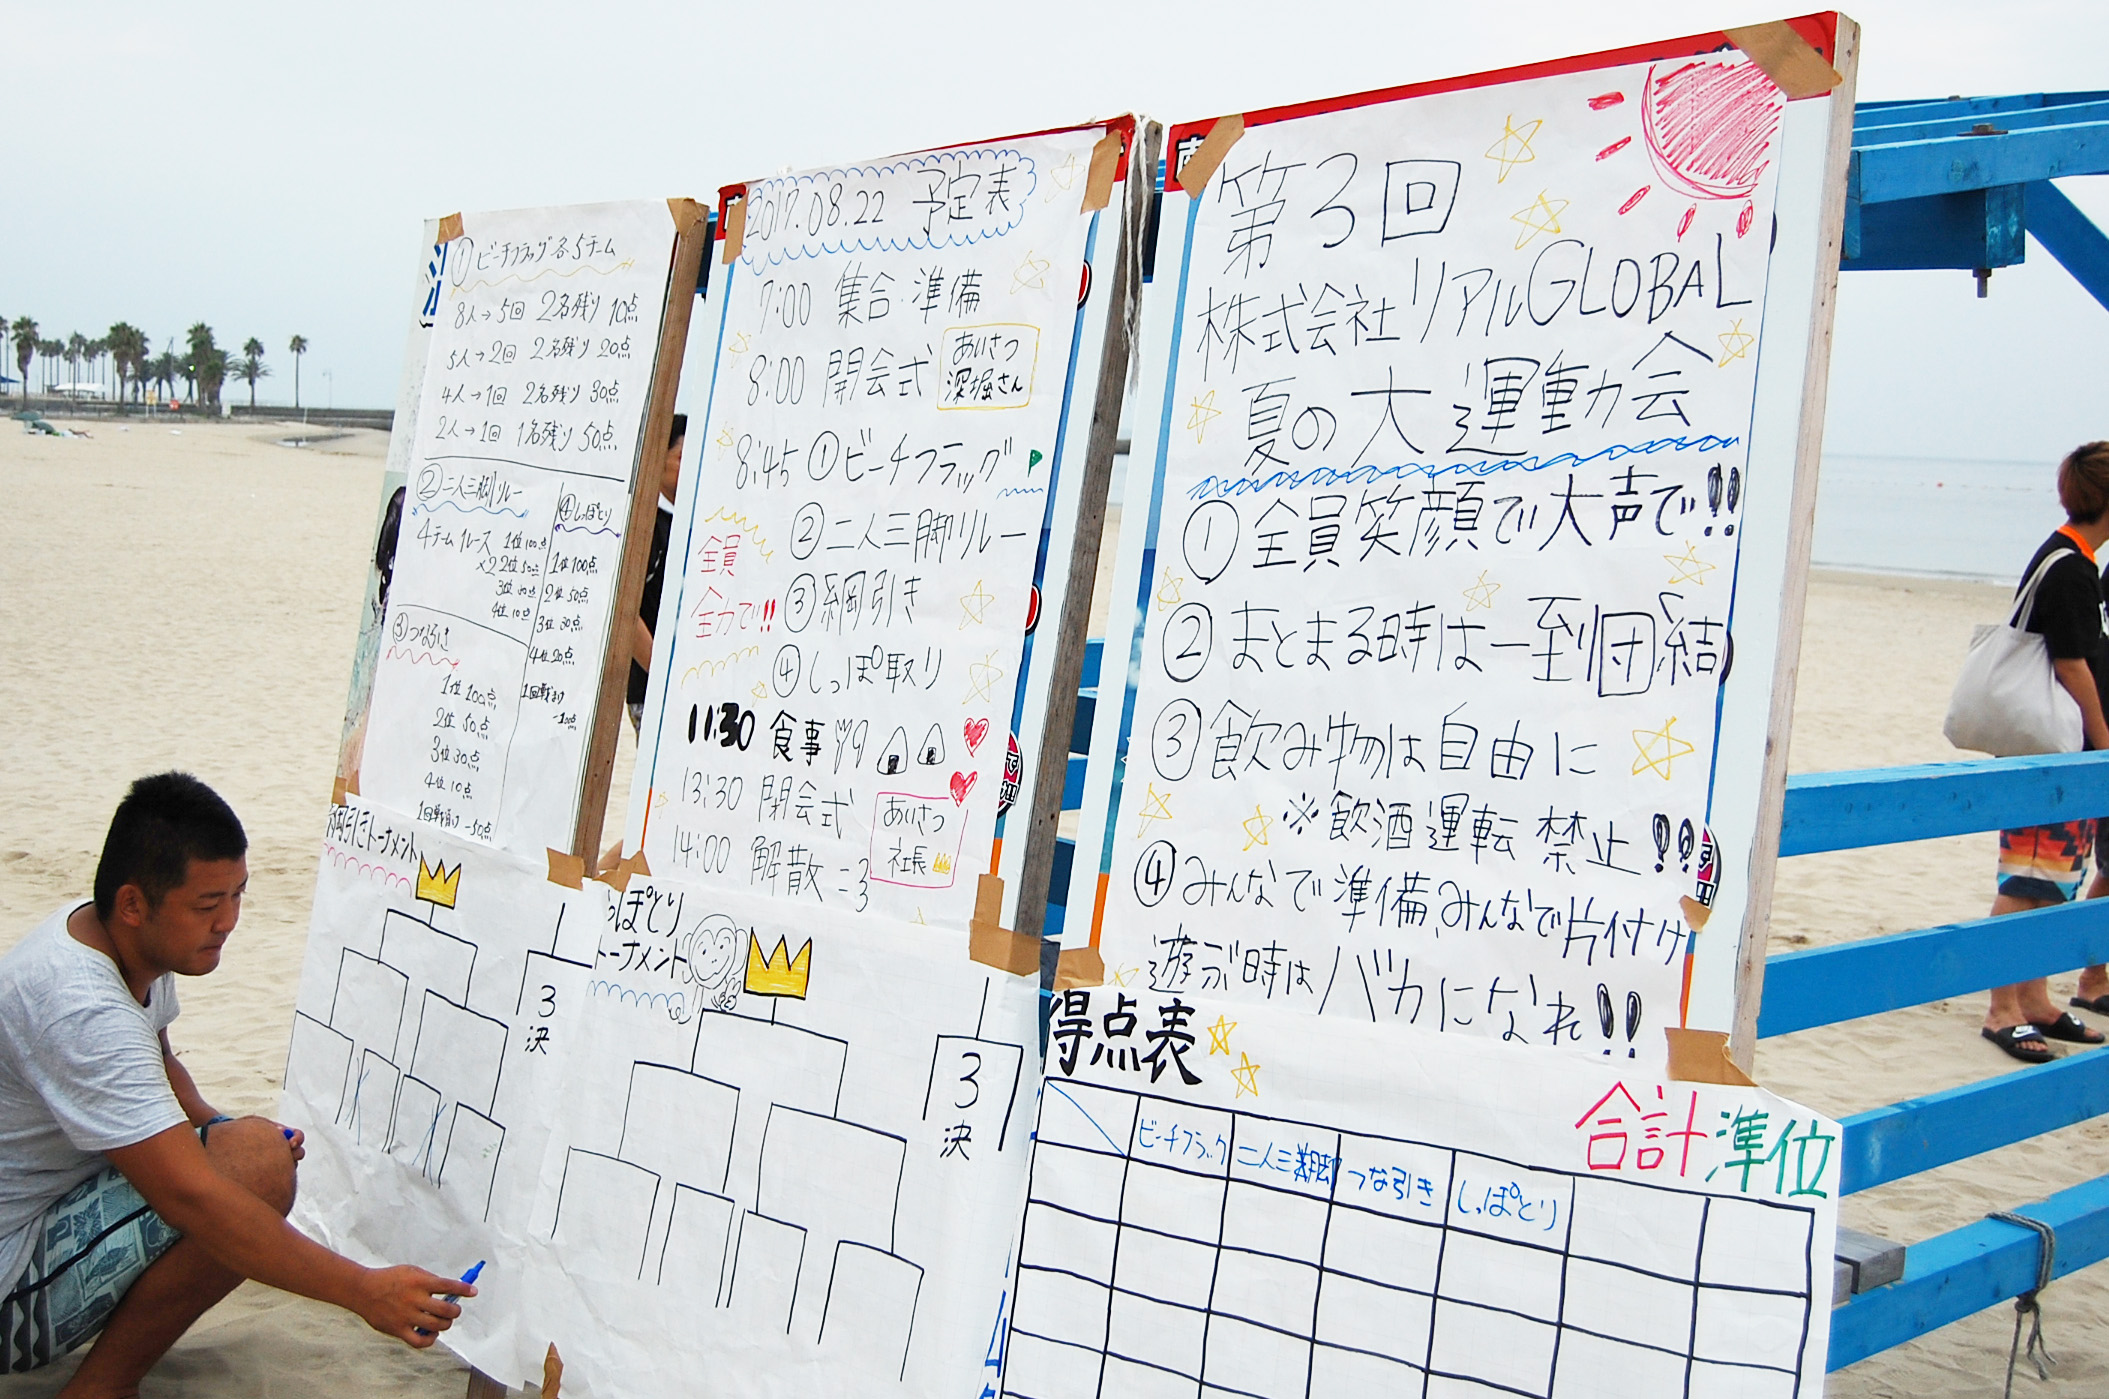 ①ビーチフラッグ各5チーム
8人→5回 2名残り 10点
5人→2回 2名残り 20点
4人→1回 2名残り 30点
2人→1回 1名残り 50点
②二人三脚リレー
4チーム1レース 1位100点
×2 2位50点
3位30点
4位10点
④しっぽとり
1位100点
2位50点
3位30点
4位20点
③つなひき
1位100点
2位50点
3位30点
4位10点
綱引きトーナメント
3
決
2017.08.22 予定表
7:00 集合・準備
8:00 開会式 あいさつ
深堀さん
8:45 ①ビーチフラッグ
②二人三脚リレー
③綱引き
④しっぽ取り
全員
全力で!!
11:30 食事
13:30 閉会式 あいさつ
社長
14:00 解散
しっぽとり
トーナメント
3
決
第3回
株式会社リアルGLOBAL
夏の大運動会
①全員笑顔で大声で!!
②まとまる時は一致団結
③飲み物は自由に
※飲酒運転禁止!!
④みんなで準備、みんなで片付け
遊ぶ時はバカになれ!!
得点表
合計 準位
ビーチフラック 二人三脚 つな引き しっぽとり